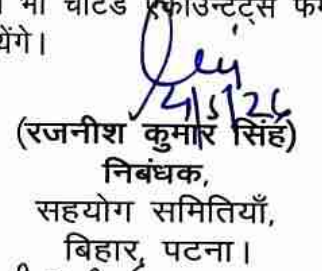 भी चार्टर्ड एकाउन्टेंट्स
येंगे।
(रजनीश कुमार सिंह)
निबंधक,
सहयोग समितियाँ,
बिहार, पटना।